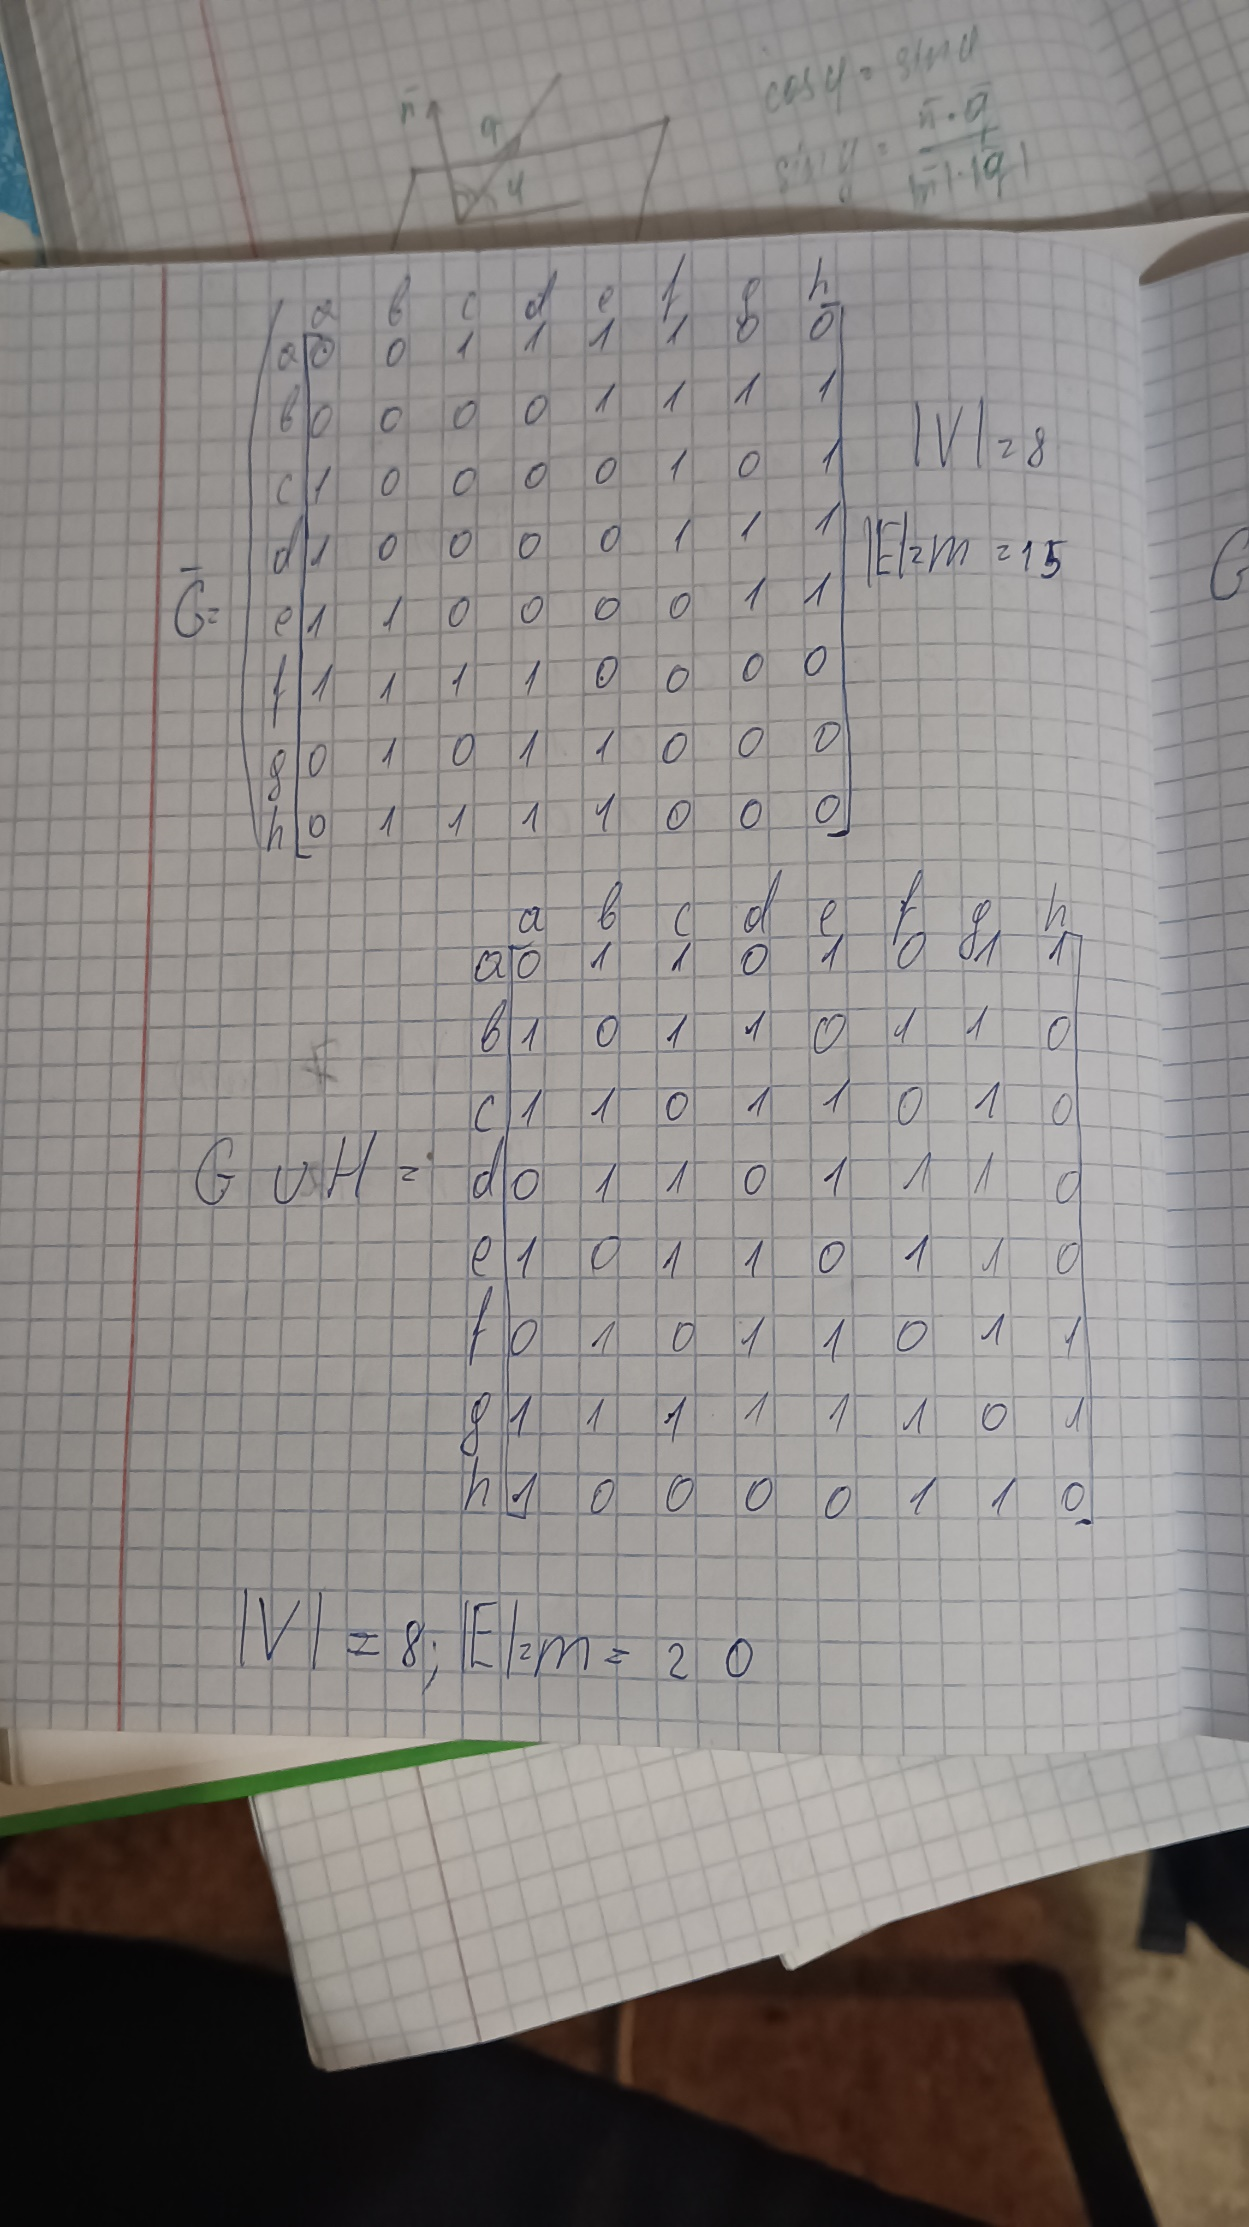 n̄ q cos φ = sin φ
φ sin φ = n̄ · q̄
|n̄| · |q̄|
a b c d e f g h
a 0 0 1 1 1 1 0 0
b 0 0 0 0 1 1 1 1
c 1 0 0 0 0 1 0 1
d 1 0 0 0 0 1 1 1
Ḡ= e 1 1 0 0 0 0 1 1
f 1 1 1 1 0 0 0 0
g 0 1 0 1 1 0 0 0
h 0 1 1 1 1 0 0 0
|V| = 8
|E|=m = 15
G
a b c d e f g h
a 0 1 1 0 1 0 1 1
b 1 0 1 1 0 1 1 0
c 1 1 0 1 1 0 1 0
G ∪ H = d 0 1 1 0 1 1 1 0
e 1 0 1 1 0 1 1 0
f 0 1 0 1 1 0 1 1
g 1 1 1 1 1 1 0 1
h 1 0 0 0 0 1 1 0
|V| = 8; |E|=m = 20